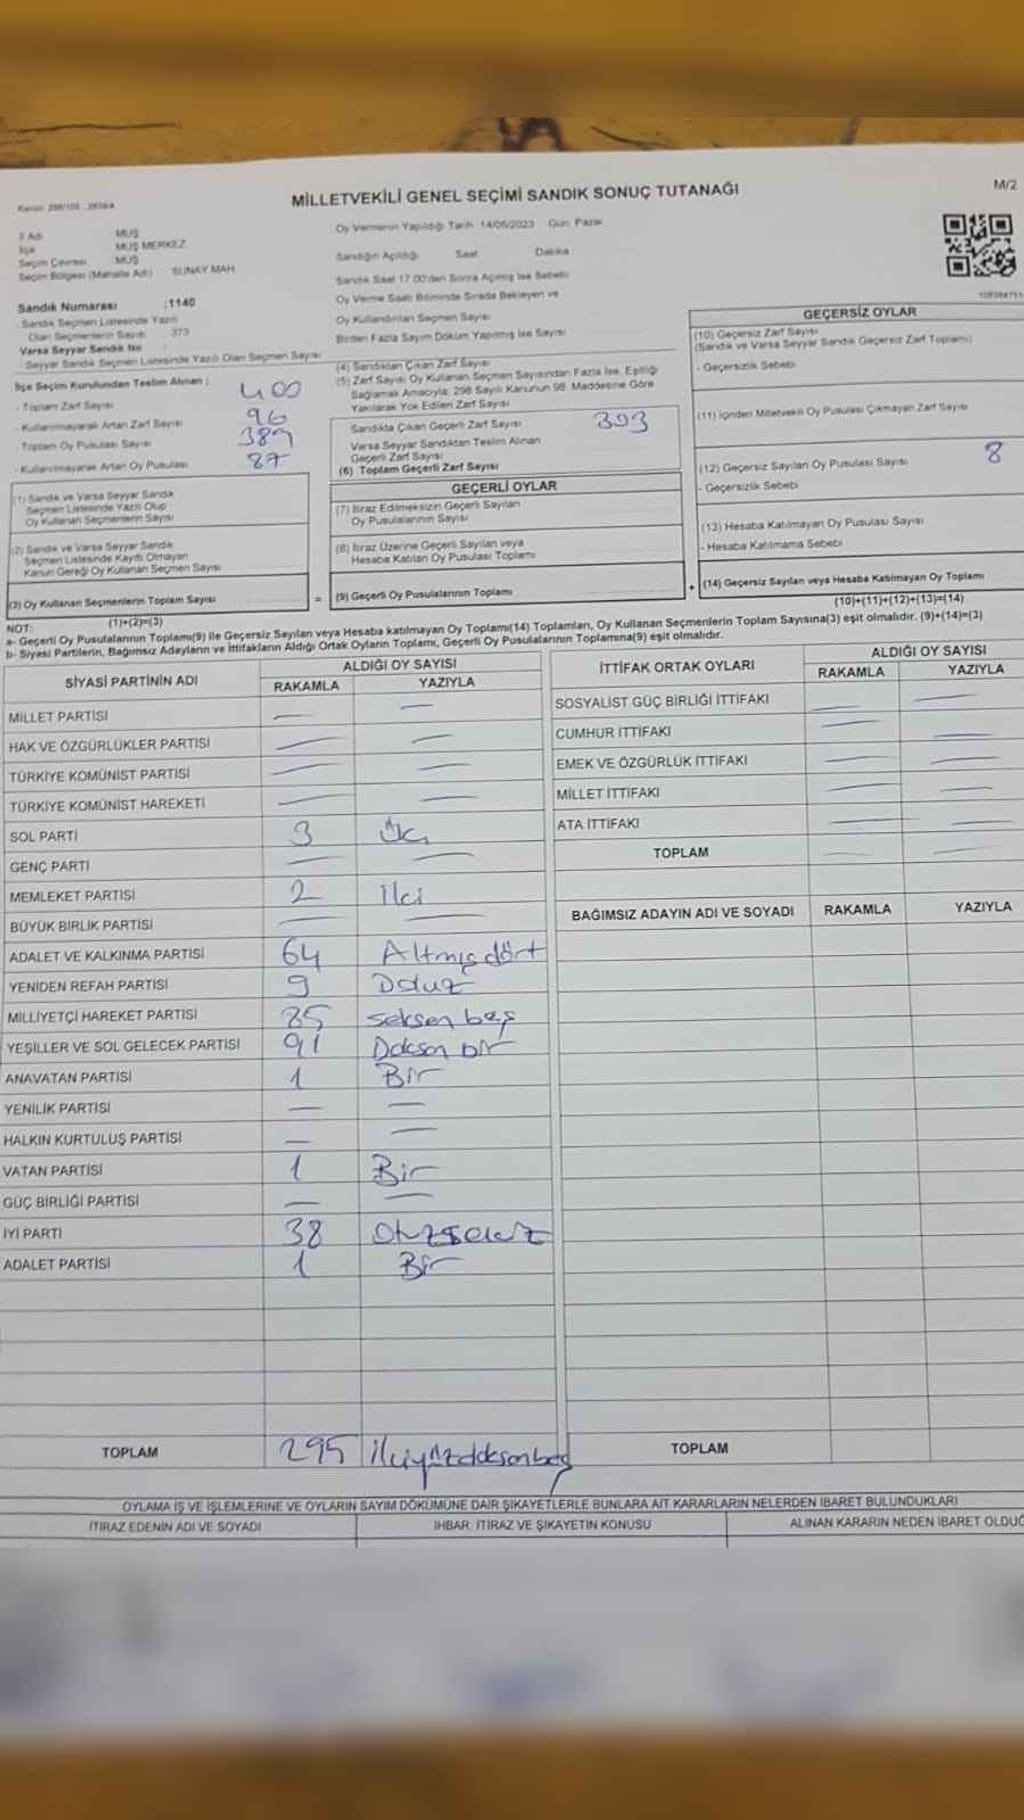 MİLLETVEKİLİ GENEL SEÇİMİ SANDIK SONUÇ TUTANAĞI
M/2
İl Adı MUŞ
İlçe MUŞ MERKEZ
Seçim Çevresi MUŞ
Seçim Bölgesi (Mahalle Adı) SUNAY MAH
Oy Vermenin Yapıldığı Tarih 14/05/2023 Gün: Pazar
Sandığın Açıldığı Saat Dakika
Sandık Saat 17.00'den Sonra Açılmış İse Sebebi
Oy Verme Saati Bitiminde Sırada Bekleyen ve
Oy Kullandırılan Seçmen Sayısı
Birden Fazla Sayım Döküm Yapılmış İse Sayısı
Sandık Numarası :1140
Sandık Seçmen Listesinde Yazılı
Olan Seçmenlerin Sayısı 373
Varsa Seyyar Sandık No
Seyyar Sandık Seçmen Listesinde Yazılı Olan Seçmen Sayısı
İlçe Seçim Kurulundan Teslim Alınan ;
- Toplam Zarf Sayısı 400
- Kullanılmayarak Artan Zarf Sayısı 96
- Toplam Oy Pusulası Sayısı 389
- Kullanılmayarak Artan Oy Pusulası 87
(1) Sandık ve Varsa Seyyar Sandık
Seçmen Listesinde Yazılı Olup
Oy Kullanan Seçmenlerin Sayısı
(2) Sandık ve Varsa Seyyar Sandık
Seçmen Listesinde Kaydı Olmayan
Kanun Gereği Oy Kullanan Seçmen Sayısı
(3) Oy Kullanan Seçmenlerin Toplam Sayısı
(1)+(2)=(3)
(4) Sandıktan Çıkan Zarf Sayısı
(5) Zarf Sayısı Oy Kullanan Seçmen Sayısından Fazla İse, Eşitliği
Sağlamak Amacıyla; 298 Sayılı Kanunun 98. Maddesine Göre
Yakılarak Yok Edilen Zarf Sayısı
Sandıkta Çıkan Geçerli Zarf Sayısı 303
Varsa Seyyar Sandıktan Teslim Alınan
Geçerli Zarf Sayısı
(6) Toplam Geçerli Zarf Sayısı
GEÇERLİ OYLAR
(7) İtiraz Edilmeksizin Geçerli Sayılan
Oy Pusulalarının Sayısı
(8) İtiraz Üzerine Geçerli Sayılan veya
Hesaba Katılan Oy Pusulası Toplamı
= (9) Geçerli Oy Pusulalarının Toplamı
GEÇERSİZ OYLAR
(10) Geçersiz Zarf Sayısı
(Sandık ve Varsa Seyyar Sandık Geçersiz Zarf Toplamı)
- Geçersizlik Sebebi
(11) İçinden Milletvekili Oy Pusulası Çıkmayan Zarf Sayısı
(12) Geçersiz Sayılan Oy Pusulası Sayısı 8
- Geçersizlik Sebebi
(13) Hesaba Katılmayan Oy Pusulası Sayısı
- Hesaba Katılmama Sebebi
+ (14) Geçersiz Sayılan veya Hesaba Katılmayan Oy Toplamı
(10)+(11)+(12)+(13)=(14)
NOT:
a- Geçerli Oy Pusulalarının Toplamı(9) ile Geçersiz Sayılan veya Hesaba katılmayan Oy Toplamı(14) Toplamları, Oy Kullanan Seçmenlerin Toplam Sayısına(3) eşit olmalıdır. (9)+(14)=(3)
b- Siyasi Partilerin, Bağımsız Adayların ve İttifakların Aldığı Ortak Oyların Toplamı, Geçerli Oy Pusulalarının Toplamına(9) eşit olmalıdır.
SİYASİ PARTİNİN ADI
ALDIĞI OY SAYISI
RAKAMLA YAZIYLA
MİLLET PARTİSİ — —
HAK VE ÖZGÜRLÜKLER PARTİSİ — —
TÜRKİYE KOMÜNİST PARTİSİ — —
TÜRKİYE KOMÜNİST HAREKETİ — —
SOL PARTİ 3 Üç
GENÇ PARTİ — —
MEMLEKET PARTİSİ 2 İki
BÜYÜK BİRLİK PARTİSİ — —
ADALET VE KALKINMA PARTİSİ 64 Altmışdört
YENİDEN REFAH PARTİSİ 9 Dokuz
MİLLİYETÇİ HAREKET PARTİSİ 85 seksen beş
YEŞİLLER VE SOL GELECEK PARTİSİ 91 Doksan bir
ANAVATAN PARTİSİ 1 Bir
YENİLİK PARTİSİ — —
HALKIN KURTULUŞ PARTİSİ — —
VATAN PARTİSİ 1 Bir
GÜÇ BİRLİĞİ PARTİSİ — —
İYİ PARTİ 38 Otuzsekiz
ADALET PARTİSİ 1 Bir
TOPLAM 295 ikiyüzdoksanbeş
İTTİFAK ORTAK OYLARI
ALDIĞI OY SAYISI
RAKAMLA YAZIYLA
SOSYALİST GÜÇ BİRLİĞİ İTTİFAKI — —
CUMHUR İTTİFAKI — —
EMEK VE ÖZGÜRLÜK İTTİFAKI — —
MİLLET İTTİFAKI — —
ATA İTTİFAKI — —
TOPLAM — —
BAĞIMSIZ ADAYIN ADI VE SOYADI RAKAMLA YAZIYLA
TOPLAM
OYLAMA İŞ VE İŞLEMLERİNE VE OYLARIN SAYIM DÖKÜMÜNE DAİR ŞİKAYETLERLE BUNLARA AİT KARARLARIN NELERDEN İBARET BULUNDUKLARI
İTİRAZ EDENİN ADI VE SOYADI
İHBAR, İTİRAZ VE ŞİKAYETİN KONUSU
ALINAN KARARIN NEDEN İBARET OLDUĞ